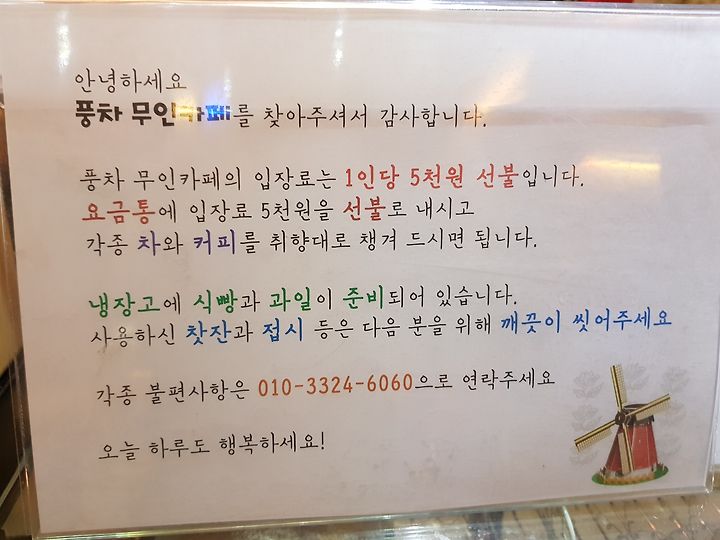 안녕하세요
풍차 무인카페를 찾아주셔서 감사합니다.
풍차 무인카페의 입장료는 1인당 5천원 선불입니다.
요금통에 입장료 5천원을 선불로 내시고
각종 차와 커피를 취향대로 챙겨 드시면 됩니다.
냉장고에 식빵과 과일이 준비되어 있습니다.
사용하신 찻잔과 접시 등은 다음 분을 위해 깨끗이 씻어주세요
각종 불편사항은 010-3324-6060으로 연락주세요
오늘 하루도 행복하세요!